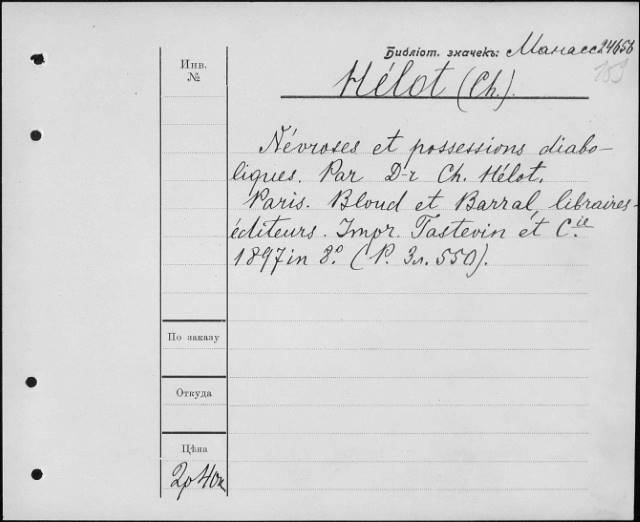 Библіот. значекъ: Манасс 24656
159
Инв.
№
Hélot (Ch.).
Névroses et possessions diabo-
liques. Par D-r Ch. Hélot.
Paris. Bloud et Barral, libraires-
éditeurs. Impr. Tastevin et Cie
1897 in 8º. (P. 3л. 550).
По заказу
Откуда
Цѣна
2р 40к